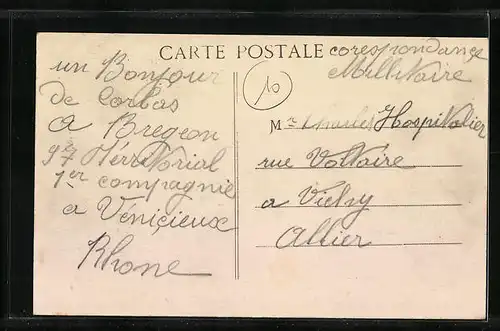 CARTE POSTALE corespondance
Millitaire
10
un Bonjour
de Corbas
a Bregeon
97 Térritorial
1er compagnie
a Véniçieux
Rhone
Mr Charles Hospitalier
rue Voltaire
a Vichy
Allier